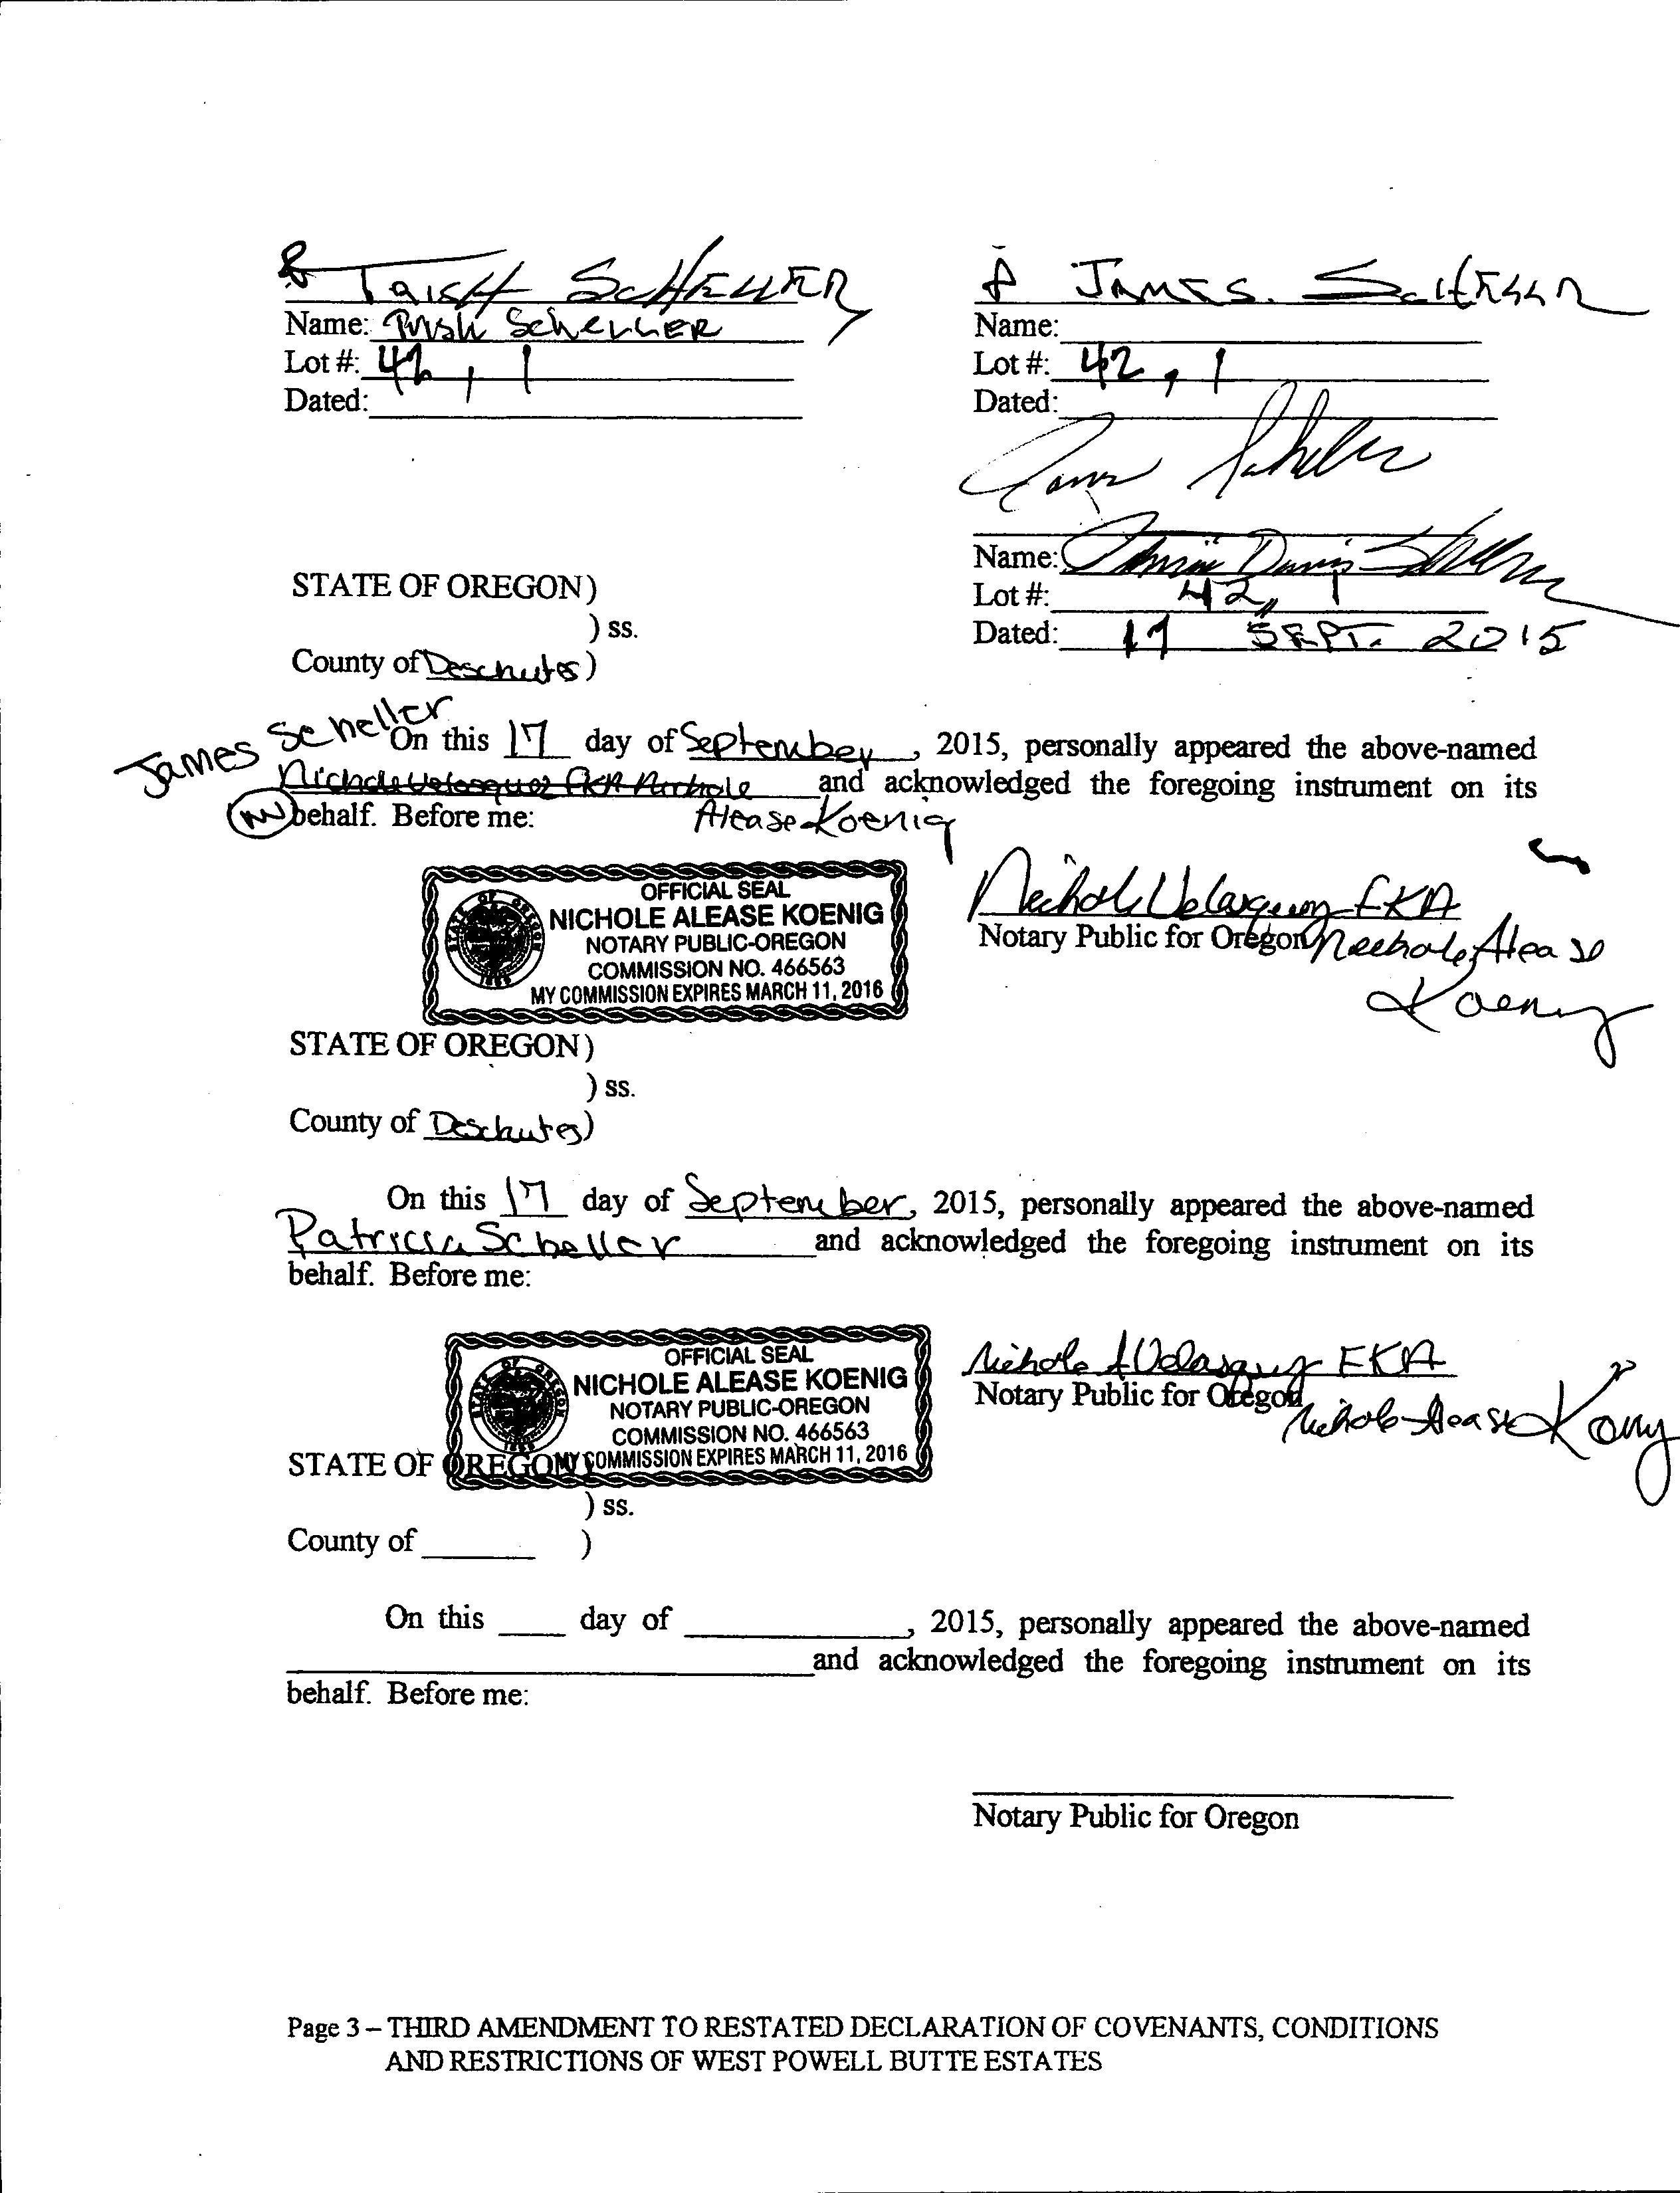 & TRISH SCHELLER
Name: Trish SCHELLER
Lot #: 42, 1
Dated:
& JAMES. SCHELLER
Name:
Lot #: 42, 1
Dated:
James Scheller
Name: Davis Scheller
Lot #: 42, 1
Dated: 17 SEPT. 2015
STATE OF OREGON)
) ss.
County of Deschutes)
James Scheller
On this 17 day of September, 2015, personally appeared the above-named
Nichole Velasquez FKA Nichole and acknowledged the foregoing instrument on its
NV behalf. Before me: Alease Koenig
OFFICIAL SEAL
NICHOLE ALEASE KOENIG
NOTARY PUBLIC-OREGON
COMMISSION NO. 466563
MY COMMISSION EXPIRES MARCH 11, 2016
STATE OF OREGON 1859
Nichole Velasquez FKA
Notary Public for Oregon Nichole Alease
Koenig
STATE OF OREGON)
) ss.
County of Deschutes)
On this 17 day of September, 2015, personally appeared the above-named
Patricia Scheller and acknowledged the foregoing instrument on its
behalf. Before me:
OFFICIAL SEAL
NICHOLE ALEASE KOENIG
NOTARY PUBLIC-OREGON
COMMISSION NO. 466563
MY COMMISSION EXPIRES MARCH 11, 2016
STATE OF OREGON 1859
Nichole A Velasquez FKA
Notary Public for Oregon
Nichole Alease Koenig
STATE OF OREGON)
) ss.
County of )
On this day of , 2015, personally appeared the above-named
and acknowledged the foregoing instrument on its
behalf. Before me:
Notary Public for Oregon
Page 3 – THIRD AMENDMENT TO RESTATED DECLARATION OF COVENANTS, CONDITIONS
AND RESTRICTIONS OF WEST POWELL BUTTE ESTATES